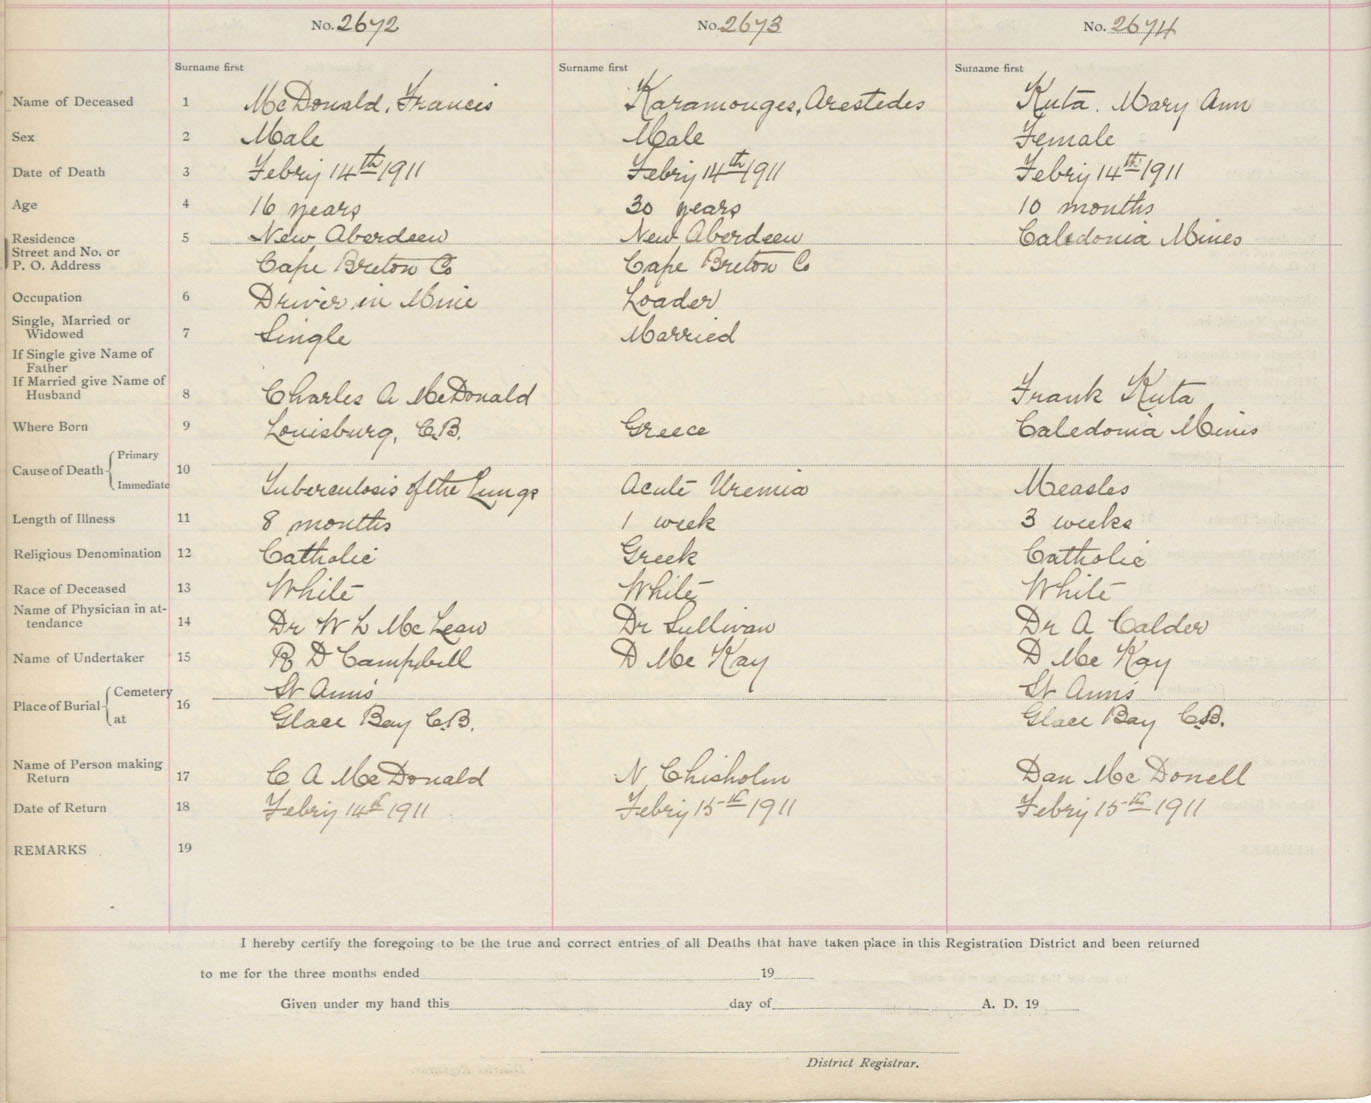 No. 2672 No. 2673 No. 2674
Surname first Surname first Surname first
Name of Deceased 1 McDonald, Francis Karamouges, Arestedes Kuta. Mary Ann
Sex 2 Male Male Female
Date of Death 3 Febry 14th 1911 Febry 14th 1911 Febry 14th 1911
Age 4 16 years 30 years 10 months
Residence 5 New Aberdeen New Aberdeen Caledonia Mines
Street and No. or
P. O. Address Cape Breton Co Cape Breton Co
Occupation 6 Driver in Mine Loader
Single, Married or
Widowed 7 Single Married
If Single give Name of
Father
If Married give Name of
Husband 8 Charles A McDonald Frank Kuta
Where Born 9 Louisburg, C.B. Greece Caledonia Mines
Cause of Death Primary 10
Immediate Tuberculosis of the Lungs Acute Uremia Measles
Length of Illness 11 8 months 1 week 3 weeks
Religious Denomination 12 Catholic Greek Catholic
Race of Deceased 13 White White White
Name of Physician in at-
tendance 14 Dr W L McLean Dr Sullivan Dr A Calder
Name of Undertaker 15 R D Campbell D McKay D McKay
Place of Burial Cemetery 16 St Anns St Anns
at Glace Bay C.B. Glace Bay C.B.
Name of Person making
Return 17 C A McDonald N Chisholm Dan McDonell
Date of Return 18 Febry 14th 1911 Febry 15th 1911 Febry 15th 1911
REMARKS 19
I hereby certify the foregoing to be the true and correct entries of all Deaths that have taken place in this Registration District and been returned
to me for the three months ended 19
Given under my hand this day of A. D. 19
District Registrar.